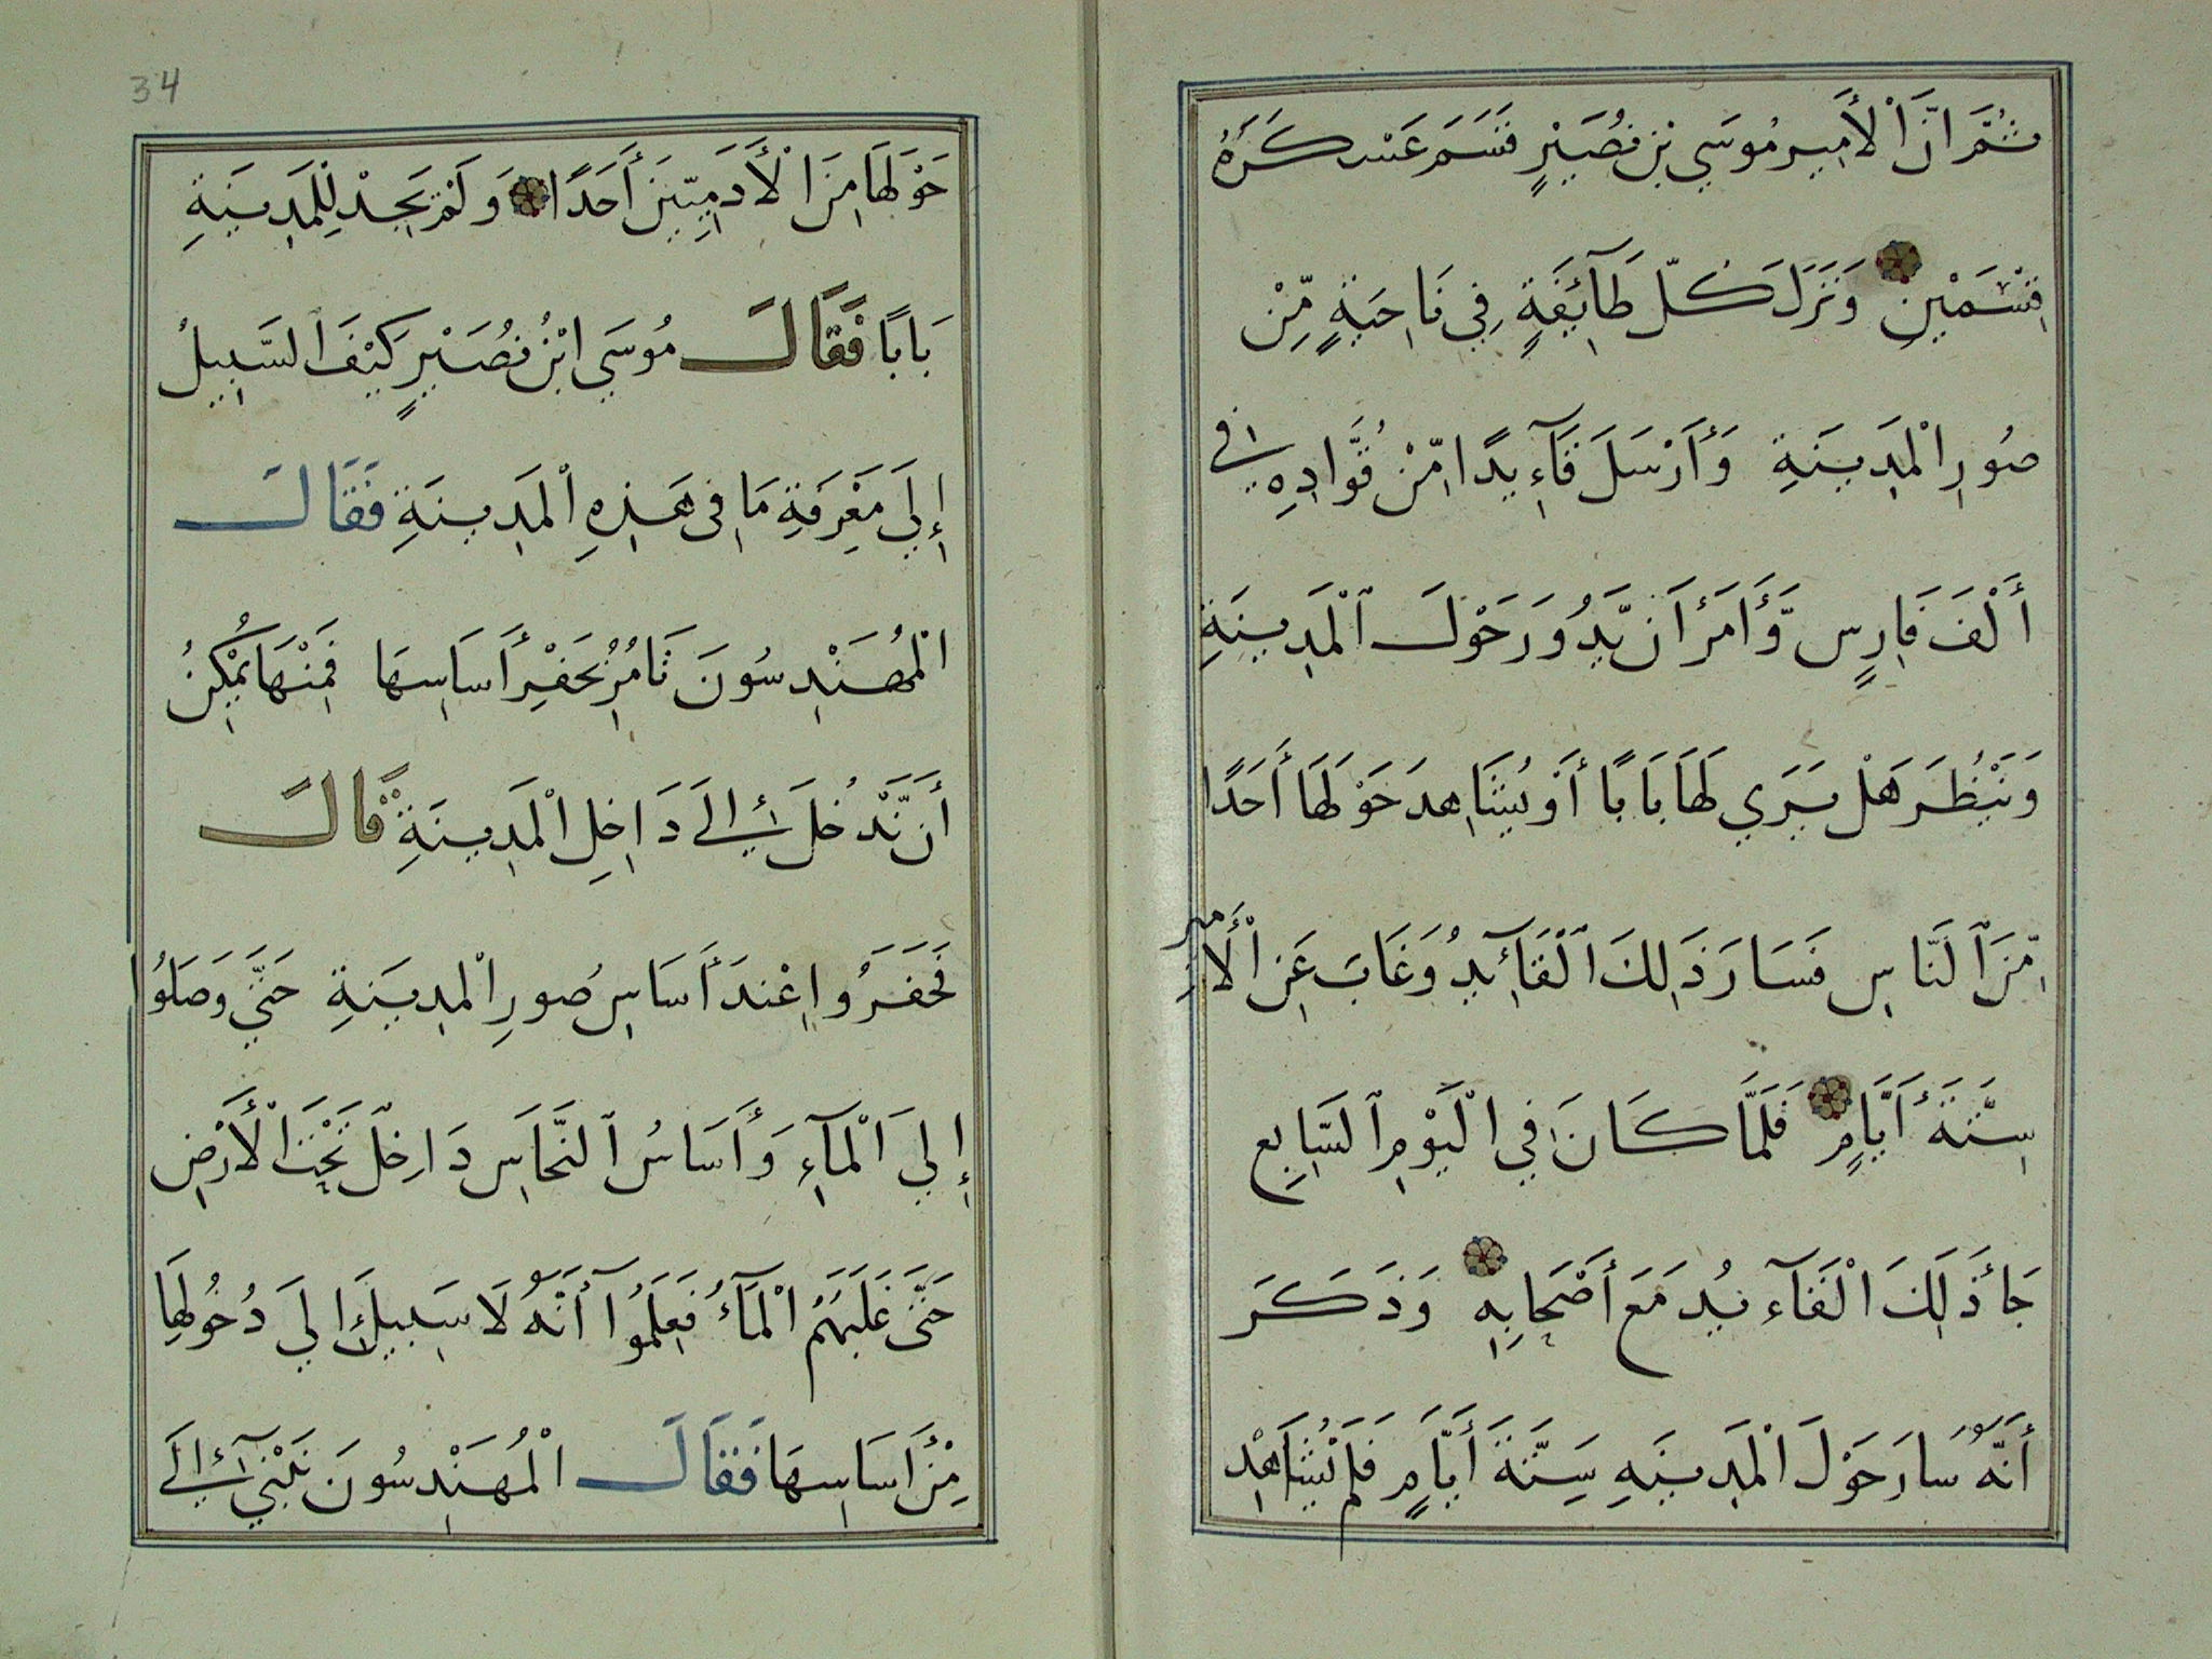 ثُمَّ انَّ الْأَمِير مُوسَي بْن نُصَيْرٍ قَسَمَ عَسْكَرَهُ
قِسْمَيْنِ وَنَزَلَ كُلّ طَآئِفَةٍ فِي نَاحِيَةٍ مِّنْ
صُورِ الْمَدِينَةِ وَأَرْسَلَ قَآءِيدًا مِّنْ قُوَّادِهِ فى
أَلْفَ فَارِسٍ وَّأَمَرَ أَن يَّدُورَ حَوْلَ ٱلْمَدِينَةِ
وَيَنْظُرَ هَلْ يَرَي لَهَا بَابًا أَوْ يُشَاهِدَ حَوْلَهَا أَحَدًا
مِّنَ ٱلنَّاسِ فَسَارَ ذَلِكَ ٱلْقَآئِدُ وَغَابَ عَنِ الْأَمير
سِتَّةَ أَيَّامٍ فَلَمَّا كَانَ فِي الْيَوْمِ ٱلسَّابِع
جَأَ ذَلِكَ الْقَآءيُدِ مَعَ أَصْحَابِهِ وَذَكَرَ
أَنَّهُ سَارَ حَوْلَ الْمَدِينَهِ سَِتَّةَ أَيَّامٍ فَلَمْ يُشَاهِدْ
34
حَوْلَهَا مِنَ الْأَدَمِيِّينَ أَحَدًا وَلَمْ يَجِدْ لِلْمَدِينَةِ
بَابًا فَقَالَ مُوسَي ابْنُ نُصَيْرٍ كَيْفَ السَّبِيلُ
إِلَي مَعْرِفَةِ مَا فِى هَذِهِ الْمَدِينَةِ فَقَالَ
الْمُهَنْدِسُونَ نَامُرُ بِحَفْرِ أَسَاسِهَا فَمِنْهَا يُمْكِنُ
أَن نَّدْخُلَ إِلَى دَاخِلِ الْمَدِينَةِ قَالَ
فَحَفَرُوا عِنْدَ أَسَاسِ صُورِ الْمدِينَةِ حَتَّي وَصَلُوا
إِلَي الْمَآءِ وَأَسَاسُ ٱلنَّحَاسِ دَاخِلّ تَحْتَ الْأَرْضِ
حَتَّى غَلَبَهُمُ الْمَآءُ فَعَلِمُوا أَنَّهُ لَا سَبِيلَ إِلَي دُخُولِهَا
مِنْ أَسَاسِهَا فَقَالَ الْمُهَنْدِسُونَ نَبْنِي إِلَى